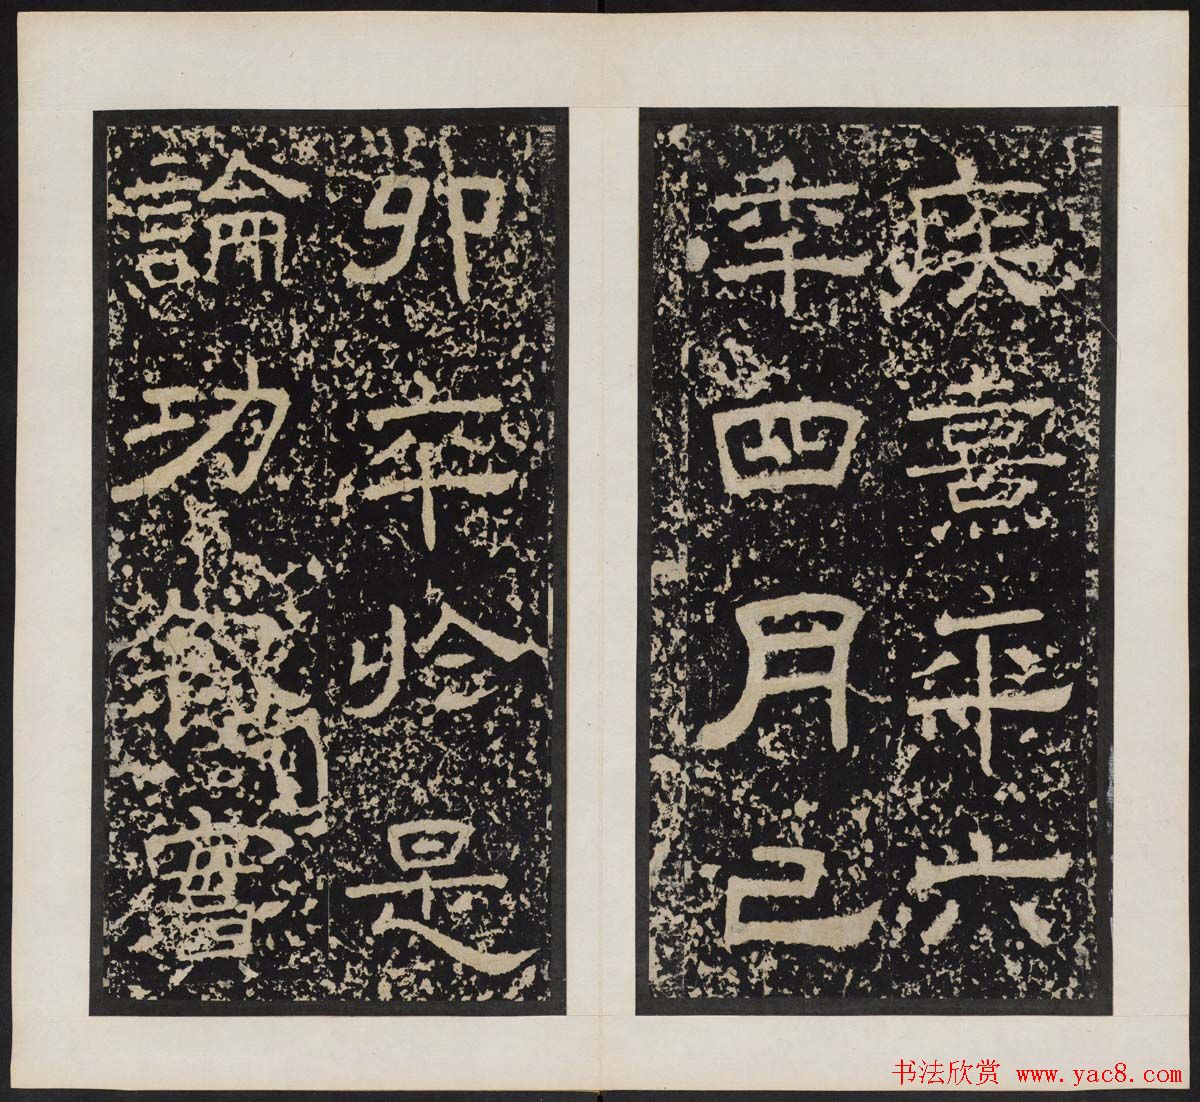 疾熹平六
年四月己
卯卒於是
論功實
书法欣赏 www.yac8.com